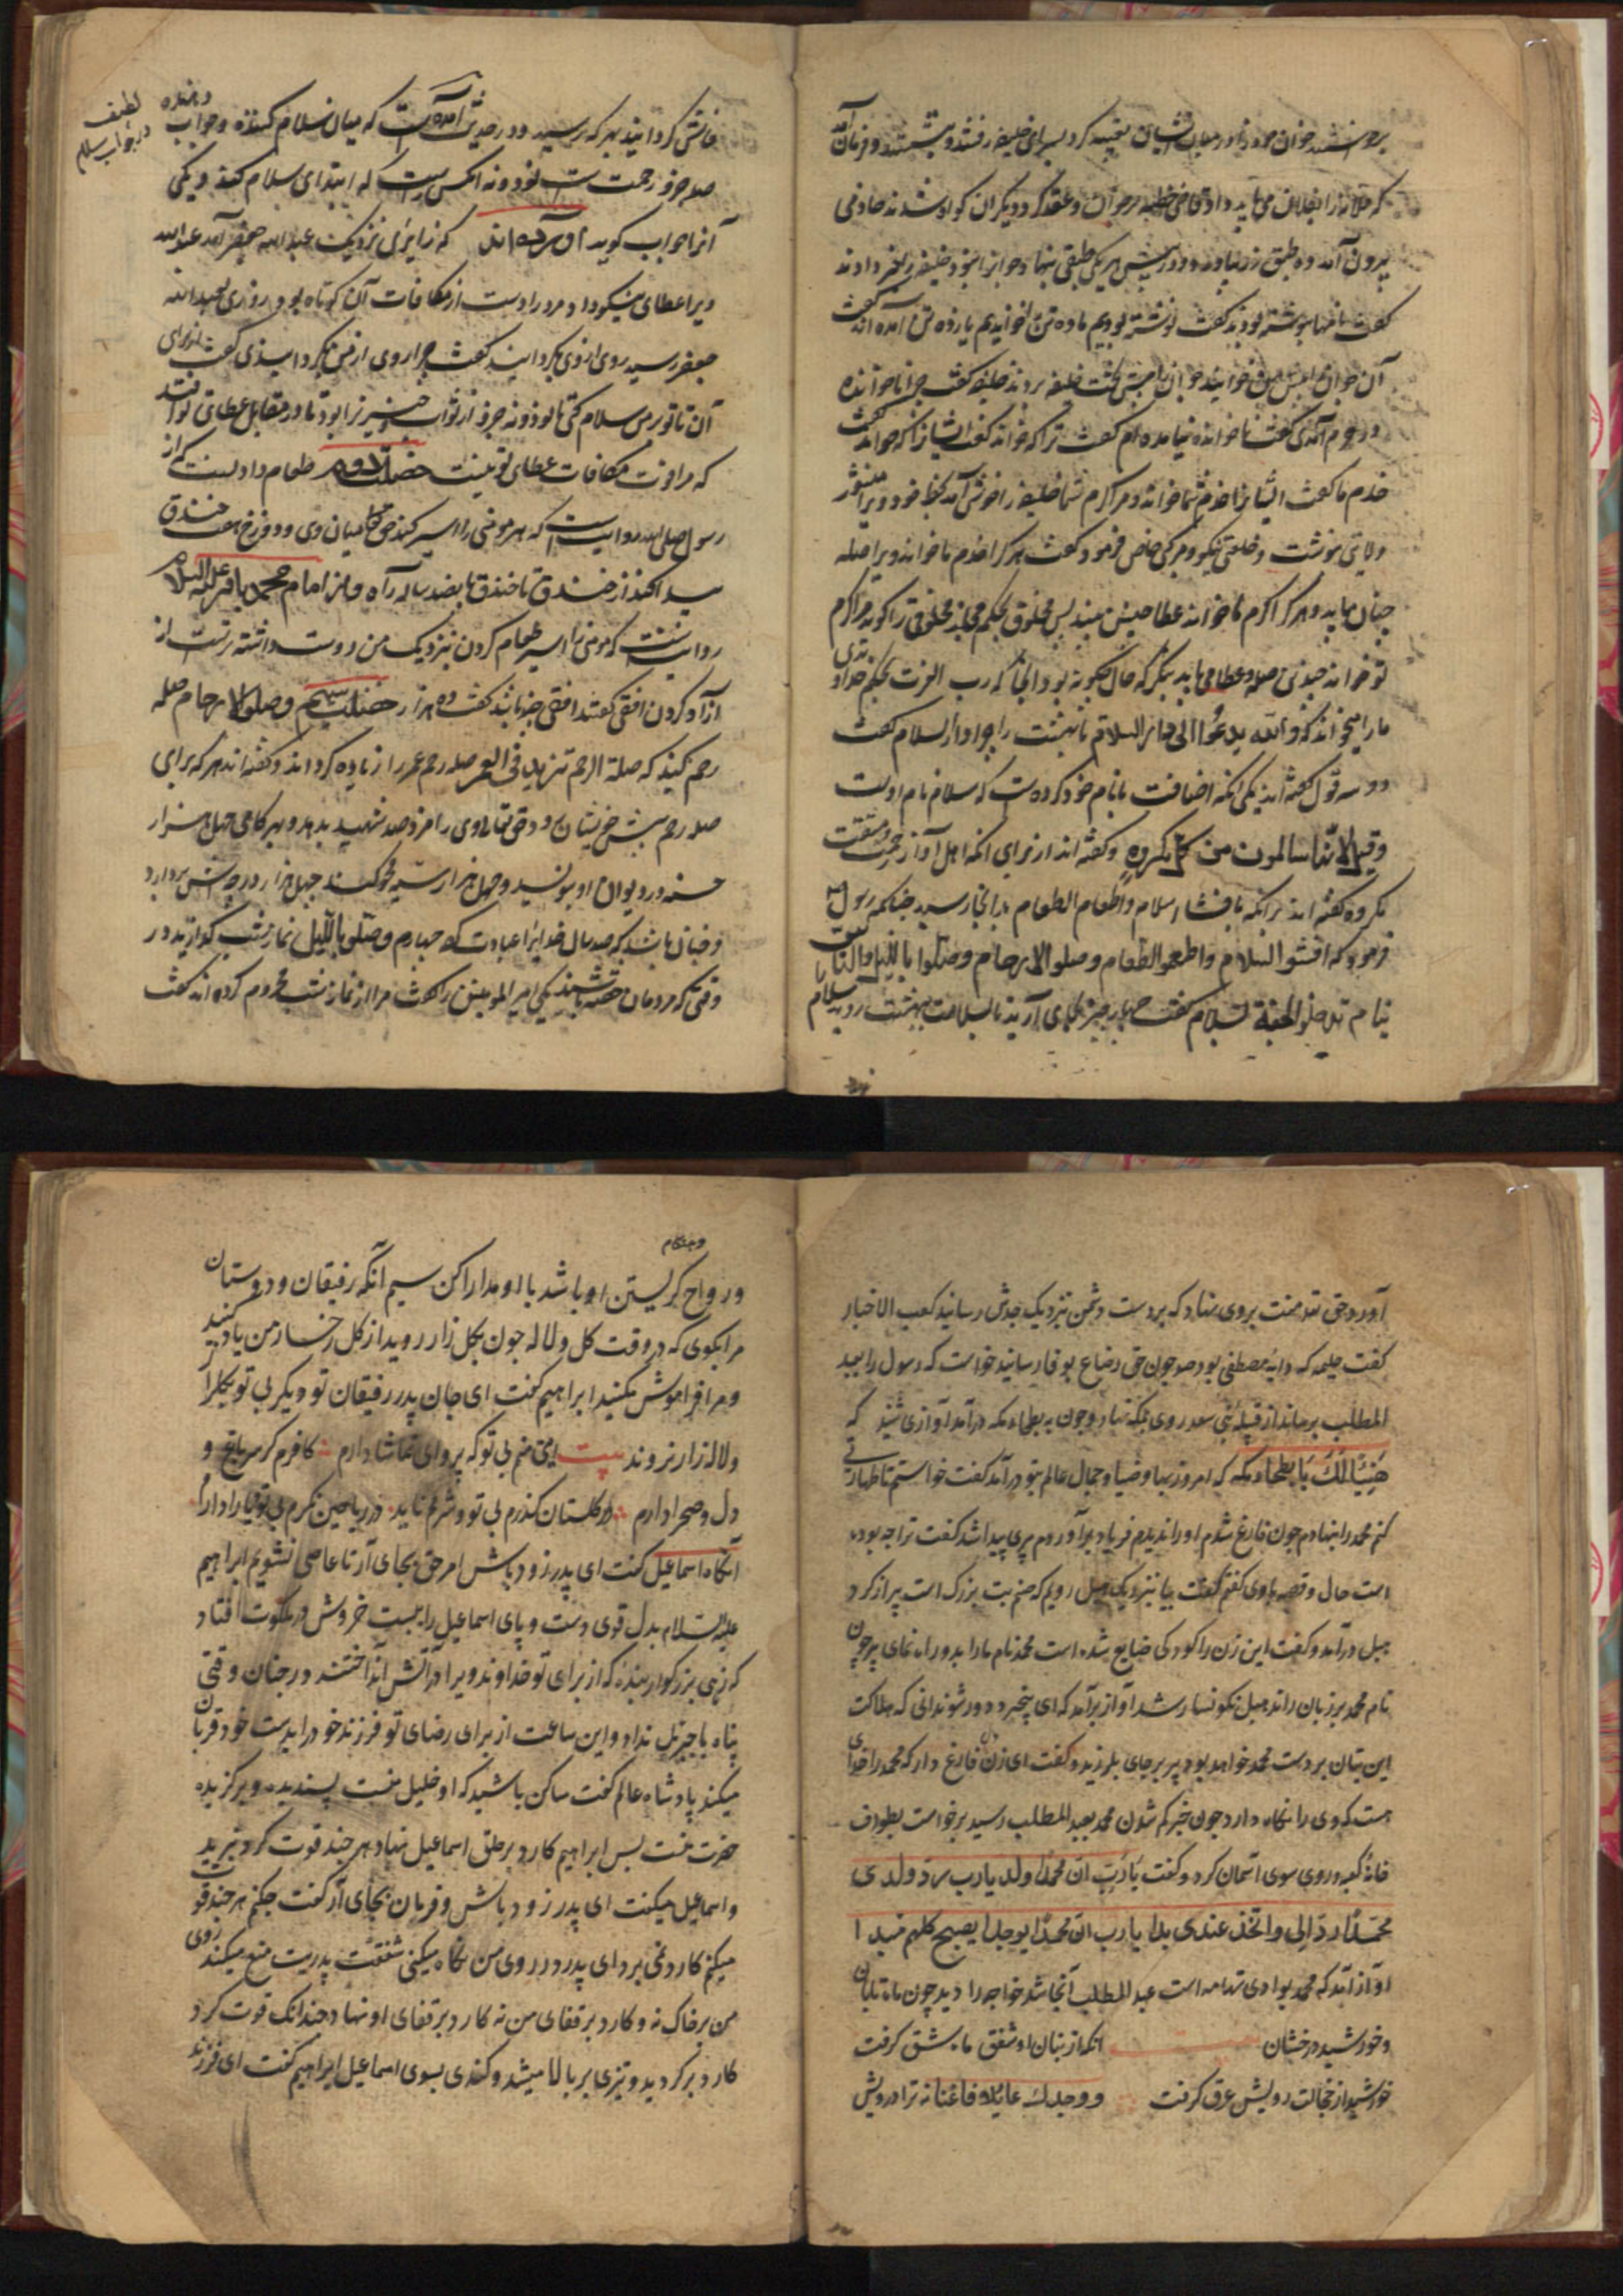 برخاستند جوان خود را در میان ایشان تعبیه کرد بسرای خلیفه رفتند و بنشستند و فرمان آمد
که فلانه را بفلان می باید داد قاضی خطبه برخواند و عقد کرد و دیگران گواه شدند خادمی
بیرون آمد و ده طبق زر بیاورد و در پیش هر یکی طبقی بنهاد و جوانرا نبود خلیفه را خبر دادند
گفت نامها نوشته بودند گفت نوشته بودیم ما ده تن خواندیم یازده تن آمده اند گفت
آن جوان را پیش من خوانید جوان را پیش تخت خلیفه بردند خلیفه گفت چرا ناخوانده
در حرم آمدی گفت ناخوانده نیامده ام گفت ترا که خواند گفت ایشانرا که خواند گفت
خدم ما گفت ایشانرا خدم شما خواند و مرا کرم شما خلیفه را خوش آمد بخط خود ویرا منشور
ولایتی نوشت و خلعتی نیکو و مرکبی خاص فرمود و گفت هر کرا خدم ما خواند ویرا صله
چنان باید و هر کرا کرم ما خواند عطا چنین بیند پس مخلوق بحکم مجاز مخلوقی را گوید مرا کرم
تو خواند چندین صله و عطا می یابد بنگر که حال چگونه بود آنجا که رب العزت بحکم خداوندی
ما را میخواند که والله یدعوا الی دار السلام تا بهشت را چرا دار السلام گفت
دو سه قول گفته اند یکی آنکه اضافت با نام خود کرده است که سلام نام اوست
وقیل لانها سالمون من کل مکروه و گفته اند از برای آنکه اهل او از محنت و مشقت
مکروه گفته اند برآنکه بافشاء سلام و اطعام الطعام بدانجا رسید چنانکه رسول
فرمود که افشوا السلام واطعموا الطعام وصلوا الارحام وصلوا باللیل والناس
نیام تدخلوا الجنة بسلام گفت چهار چیز بجای آرید تا بسلامت ببهشت روید سلام
فاش گردانید بهر که رسید و در حدیث آمده است که میان سلام کننده و جواب دهنده
لطیفه در جواب سلام
صد جزو رحمت است نود و نه آنکس راست که ابتدای سلام کند و یکی
آنرا جواب گوید آورده اند که زایری نزدیک عبدالله جعفر آمد عبدالله
ویرا عطای نیکو داد مرد را دست از مکافات آن کوتاه بود روزی بعبدالله
جعفر رسید روی از وی بگردانید گفت چرا روی از من بگردانیدی گفت از برای
آن تا تو بر من سلام کنی تا نود و نه جزو از ثواب خیر ترا بود تا در مقابل عطای تو افتد
که مرا قوت مکافات عطای تو نیست خصلت دوم طعام دادنست که از
رسول صلی الله روایت است که هر مومنی را سیر کند حق تعالی میان وی و دوزخ هفت خندق
پیدا کند از خندق تا خندق پانصد ساله راه و از امام محمد باقر علیه السلام
روایتست که مومنی را سیر طعام کردن نزدیک من دوست داشته ترست از
آزاد کردن افقی گفتند افقی چند باشد گفت ده هزار خصلت سیم وصلوا الارحام صله
رحم کنید که صلة الرحم تزید فی العمر صله رحم عمر را زیاده گرداند و گفته اند هر که برای
صله رحم پیش خویشان رود حق تعالی وی را مزد صد شهید بدهد و بهر گامی چهل هزار
حسنه در دیوان او بنویسد و چهل هزار سیئه محو کنند چهل هزار درجه اش بردارد
و چنان باشد که صد سال خدایرا عبادت کند چهارم وصلوا باللیل نماز شب گذارید در
وقتی که مردمان خفته باشند یکی امیر المومنین را گفت مرا از نماز شب محروم کرده اند گفت
آورد و حق تعه منت بروی نهاد که بر دست دشمن نزدیک جدش رسانید کعب الاخبار
گفت حلیمه که دایه مصطفی بود صه چون حق رضاع بوفا رسانید خواست که رسول را بعبد
المطلب برساند از قبیله بنی سعد روی بمکه نهاد و چون به بطحاء مکه درآمد آوازی شنید که
هنیئا لک یا بطحاء مکه که امروز بها و ضیاء و جمال عالم بتو درآمد گفت خواستم تا طهارتی
کنم محمد را بنهادم چون فارغ شدم او را ندیدم فریاد برآوردم پیری پیدا شد گفت ترا چه بوده
است حال و قصه با وی گفتم گفت بیا بنزدیک هبل رویم که صنم بت بزرگ است پیر از گرد
هبل درآمد و گفت این زن را کودکی ضایع شده است محمد نام ما را بدو راه نمای پیر چون
نام محمد بر زبان راند هبل نگونسار شد آواز برآمد که ای بیخبر دور شو ندانی که هلاکت
این بتان بر دست محمد خواهد بود پیر بر جای بلرزید و گفت ای زن دل فارغ دار که محمد را خدای
هست که وی را نگاه دارد چون خبر گم شدن محمد بعبد المطلب رسید برخواست بطواف
خانه کعبه و روی سوی آسمان کرد و گفت یا رب ان محمدا ولد یارب رد ولدی
محمدا رد الی واتخذ عندی یدا یا رب ان محمدا یوجدا یصبح کلهم مبیدا
آواز آمد که محمد بوادی تهامه است عبد المطلب آنجا شد خواجه را دید چون ماه تابان
و خورشید درخشان بیت آنکه از بنان او شفق ماه شق گرفت
خورشید از خجالت رویش عرق گرفت و وجدک عایلا فاغنا نه ترا درویش
و هنگام
و رواح گریستن او باشد با او مدارا کن سیم آنکه رفیقان و دوستان
مرا بگوی که در وقت گل و لاله چون بگل زار روید از گل رخسار من یاد کنید
و مرا فراموش مکنید ابراهیم گفت ای جان پدر رفیقان تو دیگر بی تو بگلزار
و لاله زار نروند بیت این منم بی تو که پروای تماشا دارم کافرم گر سر باغ و
دل و صحرا دارم در گلستان گذرم بی تو و شرمم ناید در ریاحین نگرم بی تو و یارا دارم
آنگاه اسماعیل گفت ای پدر زود باش امر حق بجای آر تا عاصی نشویم ابراهیم
علیه السلام بدل قوی دست و پای اسماعیل را ببست خروش در ملکوت افتاد
که زهی بزرگوار بنده که از برای تو خداوند ویرا در آتش انداختند در چنان وقتی
پناه با جبرئیل نداد و این ساعت از برای رضای تو فرزند خود را بدست خود قربان
میکند پادشاه عالم گفت ساکن باشید که او خلیل منست پسندیده و برگزیده
حضرت منست پس ابراهیم کارد بر حلق اسماعیل نهاد هر چند قوت کرد نبرید
و اسماعیل میگفت ای پدر زود باش و فرمان بجای آر گفت چکنم هر چند قوت
میکنم کارد نمی برد ای پدر در روی من نگاه میکنی شفقت پدریت منع میکند روی
من بر خاک نه و کارد بر قفای من نه کارد بر قفای او نهاد چندانک قوت کرد
کارد برگردید و تیزی بر بالا میشد و کندی بسوی اسماعیل ابراهیم گفت ای فرزند